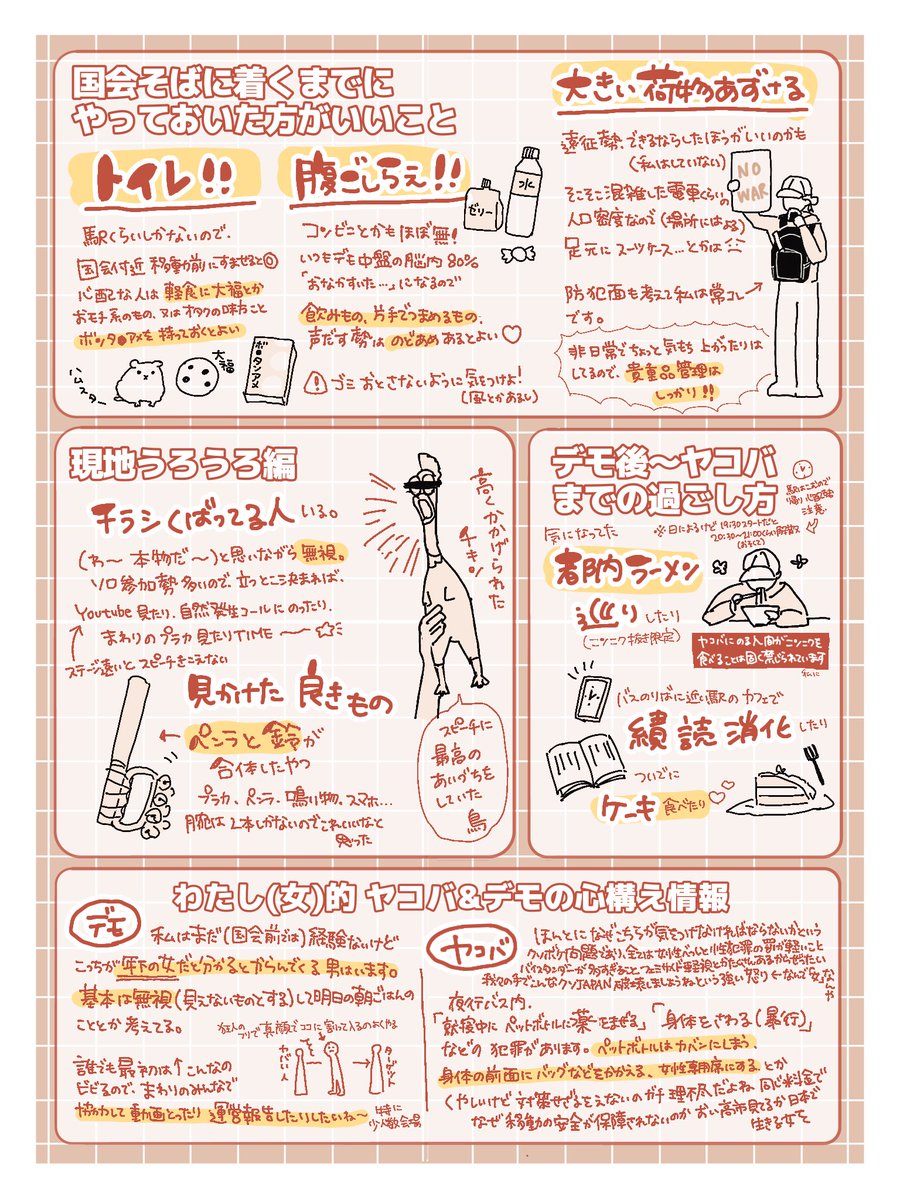 国会そばに着くまでに
やっておいた方がいいこと
トイレ!!
駅くらいしかないので、
国会付近 移動前にすませると◎
心配な人は 軽食に大福とか
おモチ系のもの、又はオタクの味方こと
ボンタ●アメを 持っておくとよい
ハムスター
大福
ボ●タンアメ
腹ごしらえ!!
コンビニとかもほぼ無!
いつもデモ中盤の脳内 80%
「おなかすいた…」になるので
飲みもの、片手でつまめるもの、
声だす勢は のどあめ あるとよい♡
ゴミ おとさないように 気をつけよ!
(風とかあるし)
ゼリー
水
大きい荷物あずける
遠征勢、できるならしたほうがいいのかも
(私はしていない)
そこそこ混雑した電車くらいの
人口密度なので (場所にはよる)
足元に スーツケース…とかは
NO
WAR
防犯面も考えて私は常コレ
です。
非日常でちょっと気もち 上がったりは
してるので、貴重品管理は
しっかり!!
現地うろうろ編
チラシくばってる人 いる。
(わ〜 本物だ〜)と思いながら 無視。
ソロ参加勢 多いので、立つとこ決まれば、
Youtube 見たり、自然発生コールにのったり、
まわりのプラカ 見たりTIME 〜☆
ステージ遠いと スピーチきこえない
見かけた 良きもの
← ペンラと鈴が
合体したやつ
プラカ、ペンラ、鳴り物、スマホ…
腕は2本しかないのでこれいいなと
思った
高くかかげられた
チキン
スピーチに
最高の
あいづちを
していた
鳥
デモ後〜ヤコバ
までの過ごし方
駅はこむので
注意
気になった
※日によるけど 19:30スタートだと
20:30〜21:00くらい解散
都内ラーメン
巡り したり
(ニンニク抜き限定)
ヤコバにのる人間がニンニクを
食べることは固く禁じられています
私に
バスのりばに近い駅のカフェで
積読消化 したり
ついでに
ケーキ 食べたり
わたし(女)的 ヤコバ&デモの心構え情報
デモ
私はまだ(国会前では)経験ないけど
こっちが 年下の女だと分かるとからんでくる 男はいます。
基本は無視(見えないものとする)して明日の朝ごはんの
こととか 考えてる。
狂人のフリで真顔でココに割って入るのおくやる
ヤバい人
ターゲット
誰でも最初は↑こんなの
ビビるので、まわりのみんなで
協力して 動画とったり 運営報告したりしたいね〜
特に
少人数会場
ヤコバ
ほんとになぜこちらが気をつけなければならないかという
クソボケ問題であり、全ては女性べっしと性犯罪の罰が軽いこと
バイスタンダーが多すぎること フェミサイド軽視とかたくさんあるからぜったい
我々の手でこんなクソJAPAN破壊しましょうねという強い怒り←なんで女なんや
夜行バス内、
「就寝中に ペットボトルに薬をまぜる」「身体をさわる(暴行)」
などの 犯罪があります。ペットボトルは カバンにしまう、
身体の前面にバッグなどをかかえる、女性専用席にする とか
くやしいけど 対策せざるをえないのガチ 理不尽だよね 同じ料金で
なぜ 移動の安全が保障されないのか おい高市見てるか 日本で
生きる女で